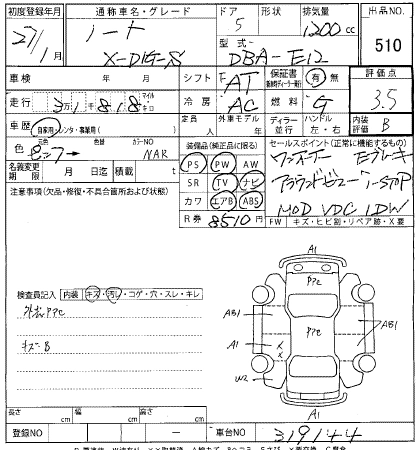 初度登録年月 通称車名・グレード ドア 形状 排気量 出品NO.
27/1月 ノート 5 1200 cc
X-DIG-S 型式 DBA-E12 510
車検 年 月 シフト F AT 保証書 有 無 評価点
走行 3万1千818キロ マイル 冷房 AC 燃料 G 3.5
車歴 自家用 レンタ・事業用( ) 定員 人 外車モデル 年 ディーラー 並行 ハンドル 左・右 内装評価 B
色 ピンク 色替 カラーNO NAR 装備品(純正品に限る) セールスポイント(正常に機能するもの)
名義変更期限 月 日迄 積載 t PS PW AW ワンオーナー Eブレーキ
注意事項(欠品・修復・不具合箇所および状態) SR TV ナビ アラウンドビュー i-STOP
カワ エアB ABS MOD VDC IDW
R券 8510円 FW キズ・ヒビ割・リペア跡・X要
A1
検査員記入 内装 キズ・汚れ・コゲ・穴・スレ・キレ PPC
外装PPC AB1 PPC AB1
キズB A1
W2
A1
長さ cm 幅 cm 高さ cm
登録NO ー 車台NO 319144